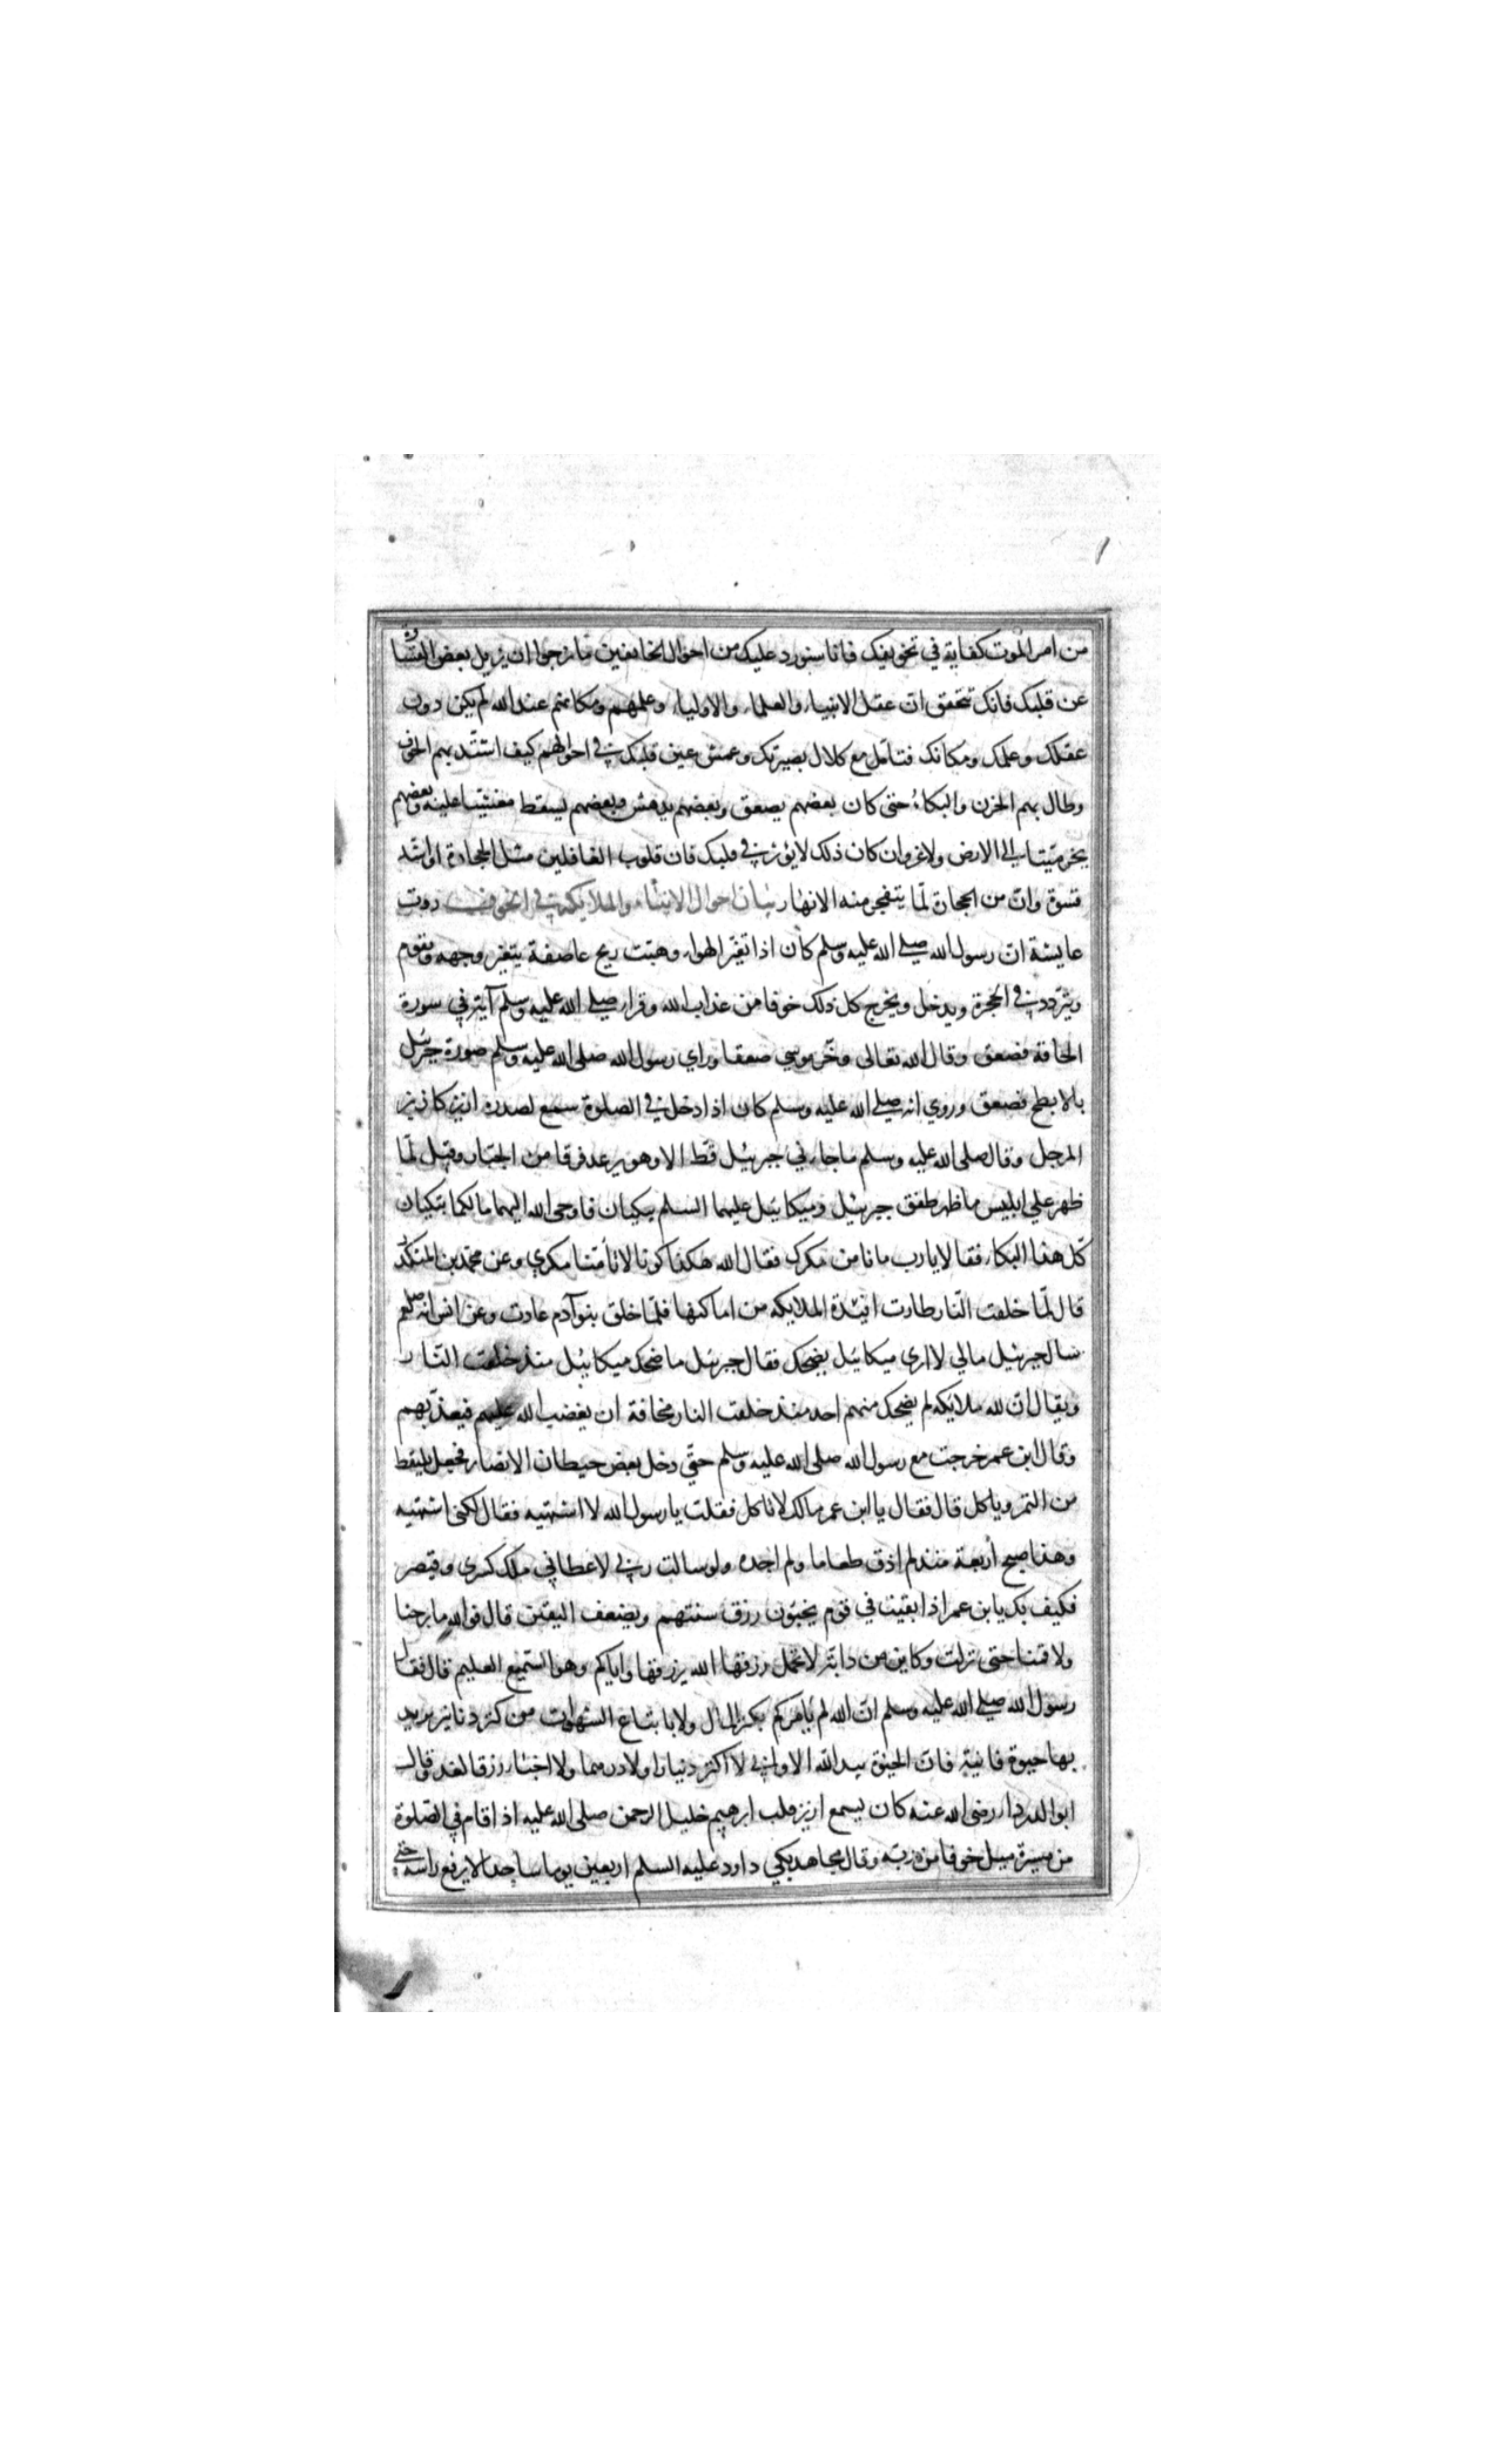 من امر الموت كفاية في تخويفك فانا سنورد عليك من احوال الخائفين ما نرجوا ان يزيل بعض القساوة
عن قلبك فانك تتحقق ان عقل الانبياء والعلماء والاولياء وعلمهم ومكانتهم عند الله لم يكن دون
عقلك وعلمك ومكانك فتامل مع كلال بصيرتك وعمش عين قلبك في احوالهم كيف اشتد بهم الخوف
وطال بهم الحزن والبكاء حتى كان بعضهم يصعق وبعضهم يدهش وبعضهم يسقط مغشيا عليه وبعضهم
يخر ميتا الى الارض ولا غرو ان كان ذلك لا يؤثر في قلبك فان قلوب الغافلين مثل الحجارة او اشد
قسوة وان من الحجارة لما يتفجر منه الانهار بيان احوال الانبياء والملايكة في الخوف روت
عايشة ان رسول الله صلي الله عليه وسلم كان اذا تغير الهواء وهبت ريح عاصفة يتغير وجهه ويقوم
ويتردد في الحجرة ويدخل ويخرج كل ذلك خوفا من عذاب الله وقرا صلي الله عليه وسلم آية في سورة
الحاقة فصعق وقال الله تعالى وخر موسي صعقا وراي رسول الله صلى الله عليه وسلم صورة جبرئيل
بالابطح فصعق وروي انه صلي الله عليه وسلم كان اذا دخل في الصلوة سمع لصدره ازيز كازيز
المرجل وقال صلى الله عليه وسلم ما جاءني جبرئيل قط الا وهو يرعد فرقا من الجبار وقيل لما
ظهر علي ابليس ما ظهر طفق جبرئيل وميكائيل عليهما السلم يبكيان فاوحى الله اليهما مالكما تبكيان
كل هذا البكاء فقالا يا رب ما نامن مكرك فقال الله هكذا كونا لا تأمنا مكري وعن محمد بن المنكدر
قال لما خلقت النار طارت افئدة الملايكه من اماكنها فلما خلق بنو آدم عادت وعن انس انه صلعم
سال جبرئيل مالي لا ارى ميكائيل يضحك فقال جبرئيل ما ضحك ميكائيل منذ خلقت النار
ويقال ان لله ملايكه لم يضحك منهم احد منذ خلقت النار مخافة ان يغضب الله عليهم فيعذبهم
وقال ابن عمر خرجت مع رسول الله صلى الله عليه وسلم حتى دخل بعض حيطان الانصار فجعل يلتقط
من التمر وياكل قال فقال يا ابن عمر مالك لا تاكل فقلت يا رسول الله لا اشتهيه فقال لكني اشتهيه
وهذا صبح أربعة منذ لم اذق طعاما ولم اجده ولو سالت ربي لاعطاني ملك كسرى وقيصر
فكيف بك يا بن عمر اذا بقيت في قوم يخبئون رزق سنتهم ويضعف اليقين قال فوالله ما برحنا
ولا قمنا حتى نزلت وكاين من دابة لا تحمل رزقها الله يرزقها واياكم وهو السميع العليم قال فقال
رسول الله صلي الله عليه وسلم ان الله لم يأمركم بكنز المال ولا باتباع الشهوات من كنز دنانير يريد
بها حيوة فانية فان الحيوة بيد الله الا واني لا اكنز دينارا ولا درهما ولا اخبئا رزقا لغد وقال
ابو الدرداء رضى الله عنه كان يسمع ازيز قلب ابرهيم خليل الرحمن صلى الله عليه اذا قام في الصلوة
من مسيرة ميل خوفا من ربه وقال مجاهد بكي داود عليه السلم اربعين يوما ساجدا لا يرفع راسه حتى